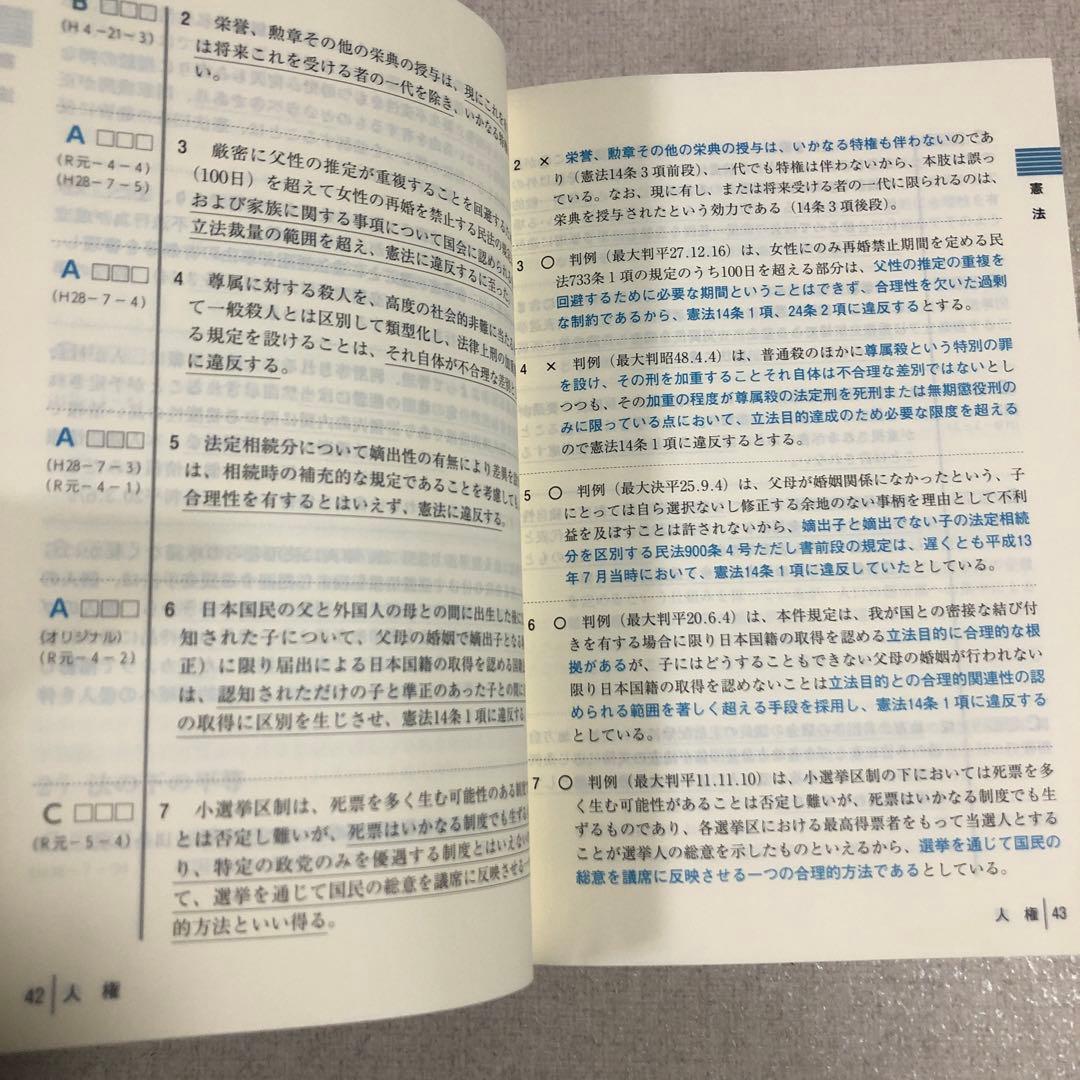 B □□□
(H4-21-3)
2 栄誉、勲章その他の栄典の授与は、現にこれを
は将来これを受ける者の一代を除き、いかなる特
い。
A □□□
(R元-4-4)
(H28-7-5)
3 厳密に父性の推定が重複することを回避する
(100日)を超えて女性の再婚を禁止する民法の
および家族に関する事項について国会に認められ
立法裁量の範囲を超え、憲法に違反するに至った
A □□□
(H28-7-4)
4 尊属に対する殺人を、高度の社会的非難に当た
て一般殺人とは区別して類型化し、法律上刑の加
る規定を設けることは、それ自体が不合理な差別
に違反する。
A □□□
(H28-7-3)
(R元-4-1)
5 法定相続分について嫡出性の有無により差異を
は、相続時の補充的な規定であることを考慮して
合理性を有するとはいえず、憲法に違反する。
A □□□
(オリジナル)
(R元-4-2)
6 日本国民の父と外国人の母との間に出生した後に
知された子について、父母の婚姻で嫡出子となる
正)に限り届出による日本国籍の取得を認める国
は、認知されただけの子と準正のあった子との間に
の取得に区別を生じさせ、憲法14条1項に違反する
C □□□
(R元-5-4)
7 小選挙区制は、死票を多く生む可能性のある制
とは否定し難いが、死票はいかなる制度でも生ずる
り、特定の政党のみを優遇する制度とはいえない
て、選挙を通じて国民の総意を議席に反映させる一
的方法といい得る。
42 人権
2 × 栄誉、勲章その他の栄典の授与は、いかなる特権も伴わないのであ
り(憲法14条3項前段)、一代でも特権は伴わないから、本肢は誤っ
ている。なお、現に有し、または将来受ける者の一代に限られるのは、
栄典を授与されたという効力である(14条3項後段)。
3 ○ 判例(最大判平27.12.16)は、女性にのみ再婚禁止期間を定める民
法733条1項の規定のうち100日を超える部分は、父性の推定の重複を
回避するために必要な期間ということはできず、合理性を欠いた過剰
な制約であるから、憲法14条1項、24条2項に違反するとする。
4 × 判例(最大判昭48.4.4)は、普通殺のほかに尊属殺という特別の罪
を設け、その刑を加重することそれ自体は不合理な差別ではないとし
つつも、その加重の程度が尊属殺の法定刑を死刑または無期懲役刑の
みに限っている点において、立法目的達成のため必要な限度を超える
ので憲法14条1項に違反するとする。
5 ○ 判例(最大決平25.9.4)は、父母が婚姻関係になかったという、子
にとっては自ら選択ないし修正する余地のない事柄を理由として不利
益を及ぼすことは許されないから、嫡出子と嫡出でない子の法定相続
分を区別する民法900条4号ただし書前段の規定は、遅くとも平成13
年7月当時において、憲法14条1項に違反していたとしている。
6 ○ 判例(最大判平20.6.4)は、本件規定は、我が国との密接な結び付
きを有する場合に限り日本国籍の取得を認める立法目的に合理的な根
拠があるが、子にはどうすることもできない父母の婚姻が行われない
限り日本国籍の取得を認めないことは立法目的との合理的関連性の認
められる範囲を著しく超える手段を採用し、憲法14条1項に違反する
としている。
7 ○ 判例(最大判平11.11.10)は、小選挙区制の下においては死票を多
く生む可能性があることは否定し難いが、死票はいかなる制度でも生
ずるものであり、各選挙区における最高得票者をもって当選人とする
ことが選挙人の総意を示したものといえるから、選挙を通じて国民の
総意を議席に反映させる一つの合理的方法であるとしている。
憲法
人権 43